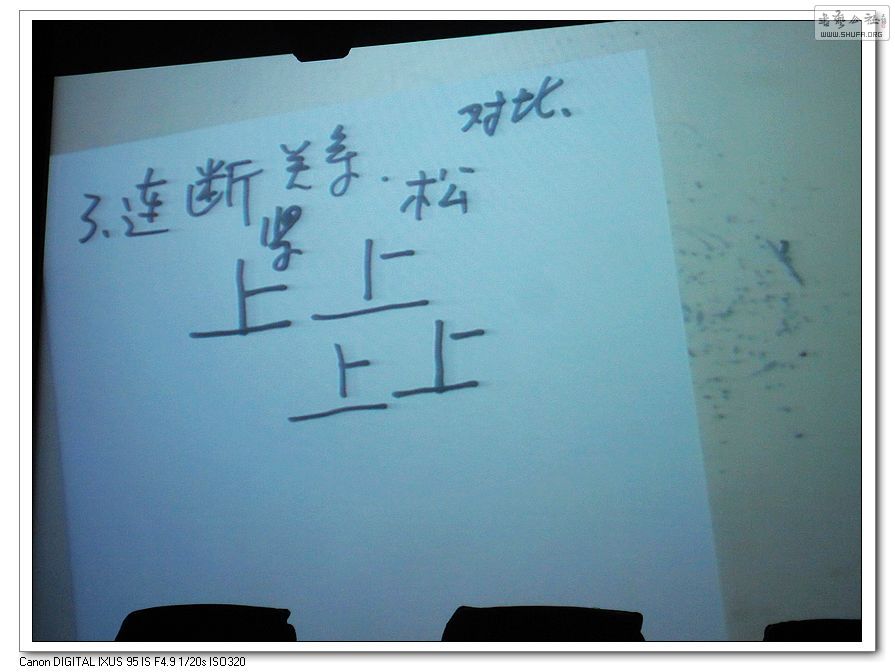 书艺公社
www.SHUFA.ORG
对比、
3、连断关系. 松
紧
上 上
上 上
Canon DIGITAL IXUS 95 IS F4.9 1/20s ISO320